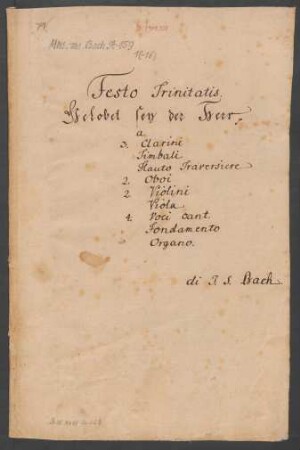 Festo Trinitatis.
Gelobet sey der Herr,
a
3. Clarini
Timbali
Flauto Traversiere
2. Oboi
2. Violini
Viola
4. Voci Cant.
Fondamento
Organo.
di J. S. Bach